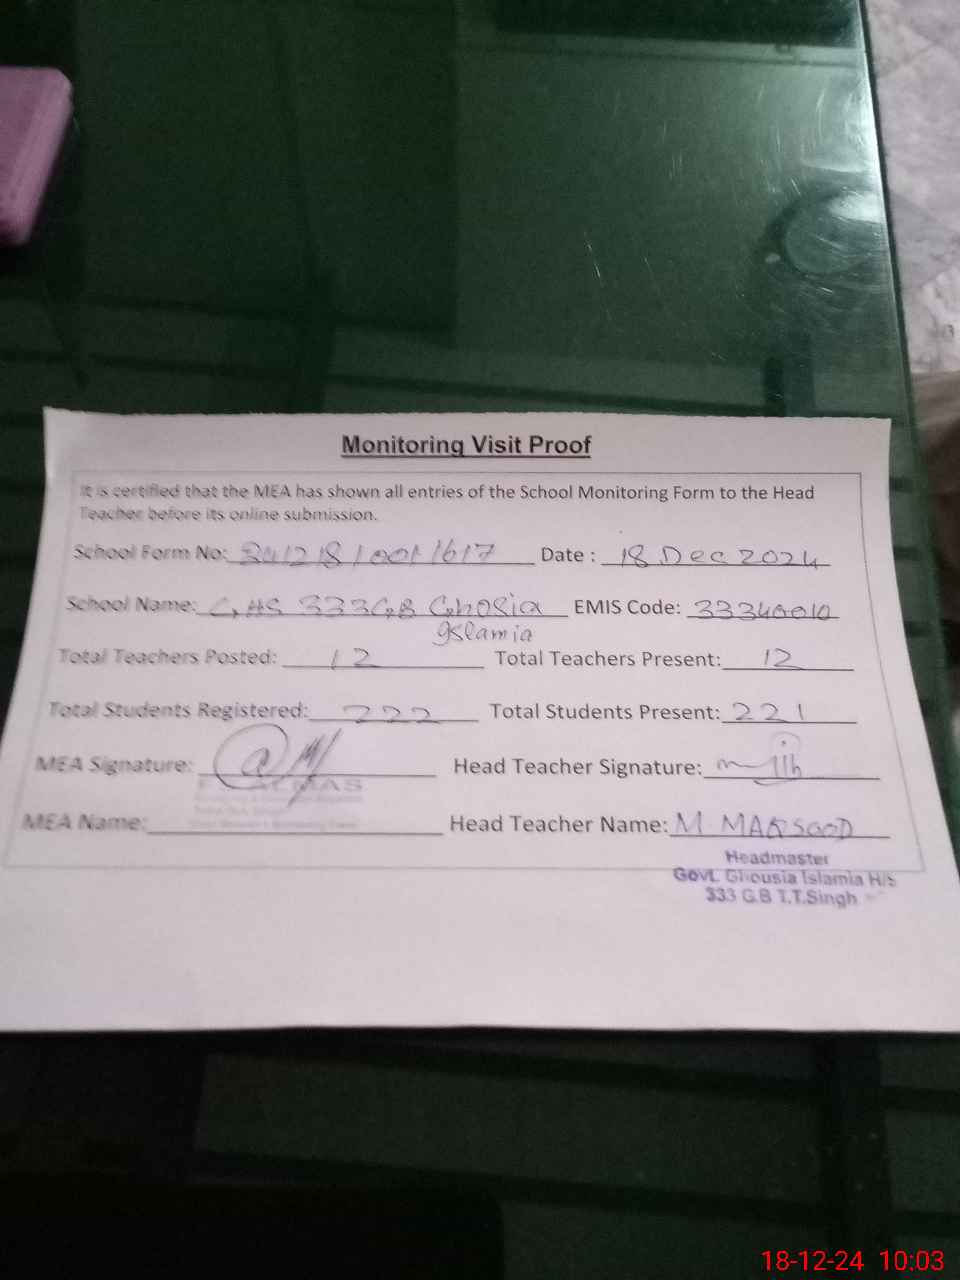 Monitoring Visit Proof
It is certified that the MEA has shown all entries of the School Monitoring Form to the Head
Teacher before its online submission.
School Form No: 241218 1001 1617 Date : 18 Dec 2024
School Name: GHS 333GB Ghosia EMIS Code: 33340010
Islamia
Total Teachers Posted: 12 Total Teachers Present: 12
Total Students Registered: 222 Total Students Present: 221
MEA Signature: Head Teacher Signature:
MEA Name: Head Teacher Name: M. MAQSOOD
Headmaster
Govt. Ghousia Islamia H/S
333 G.B T.T.Singh
18-12-24 10:03